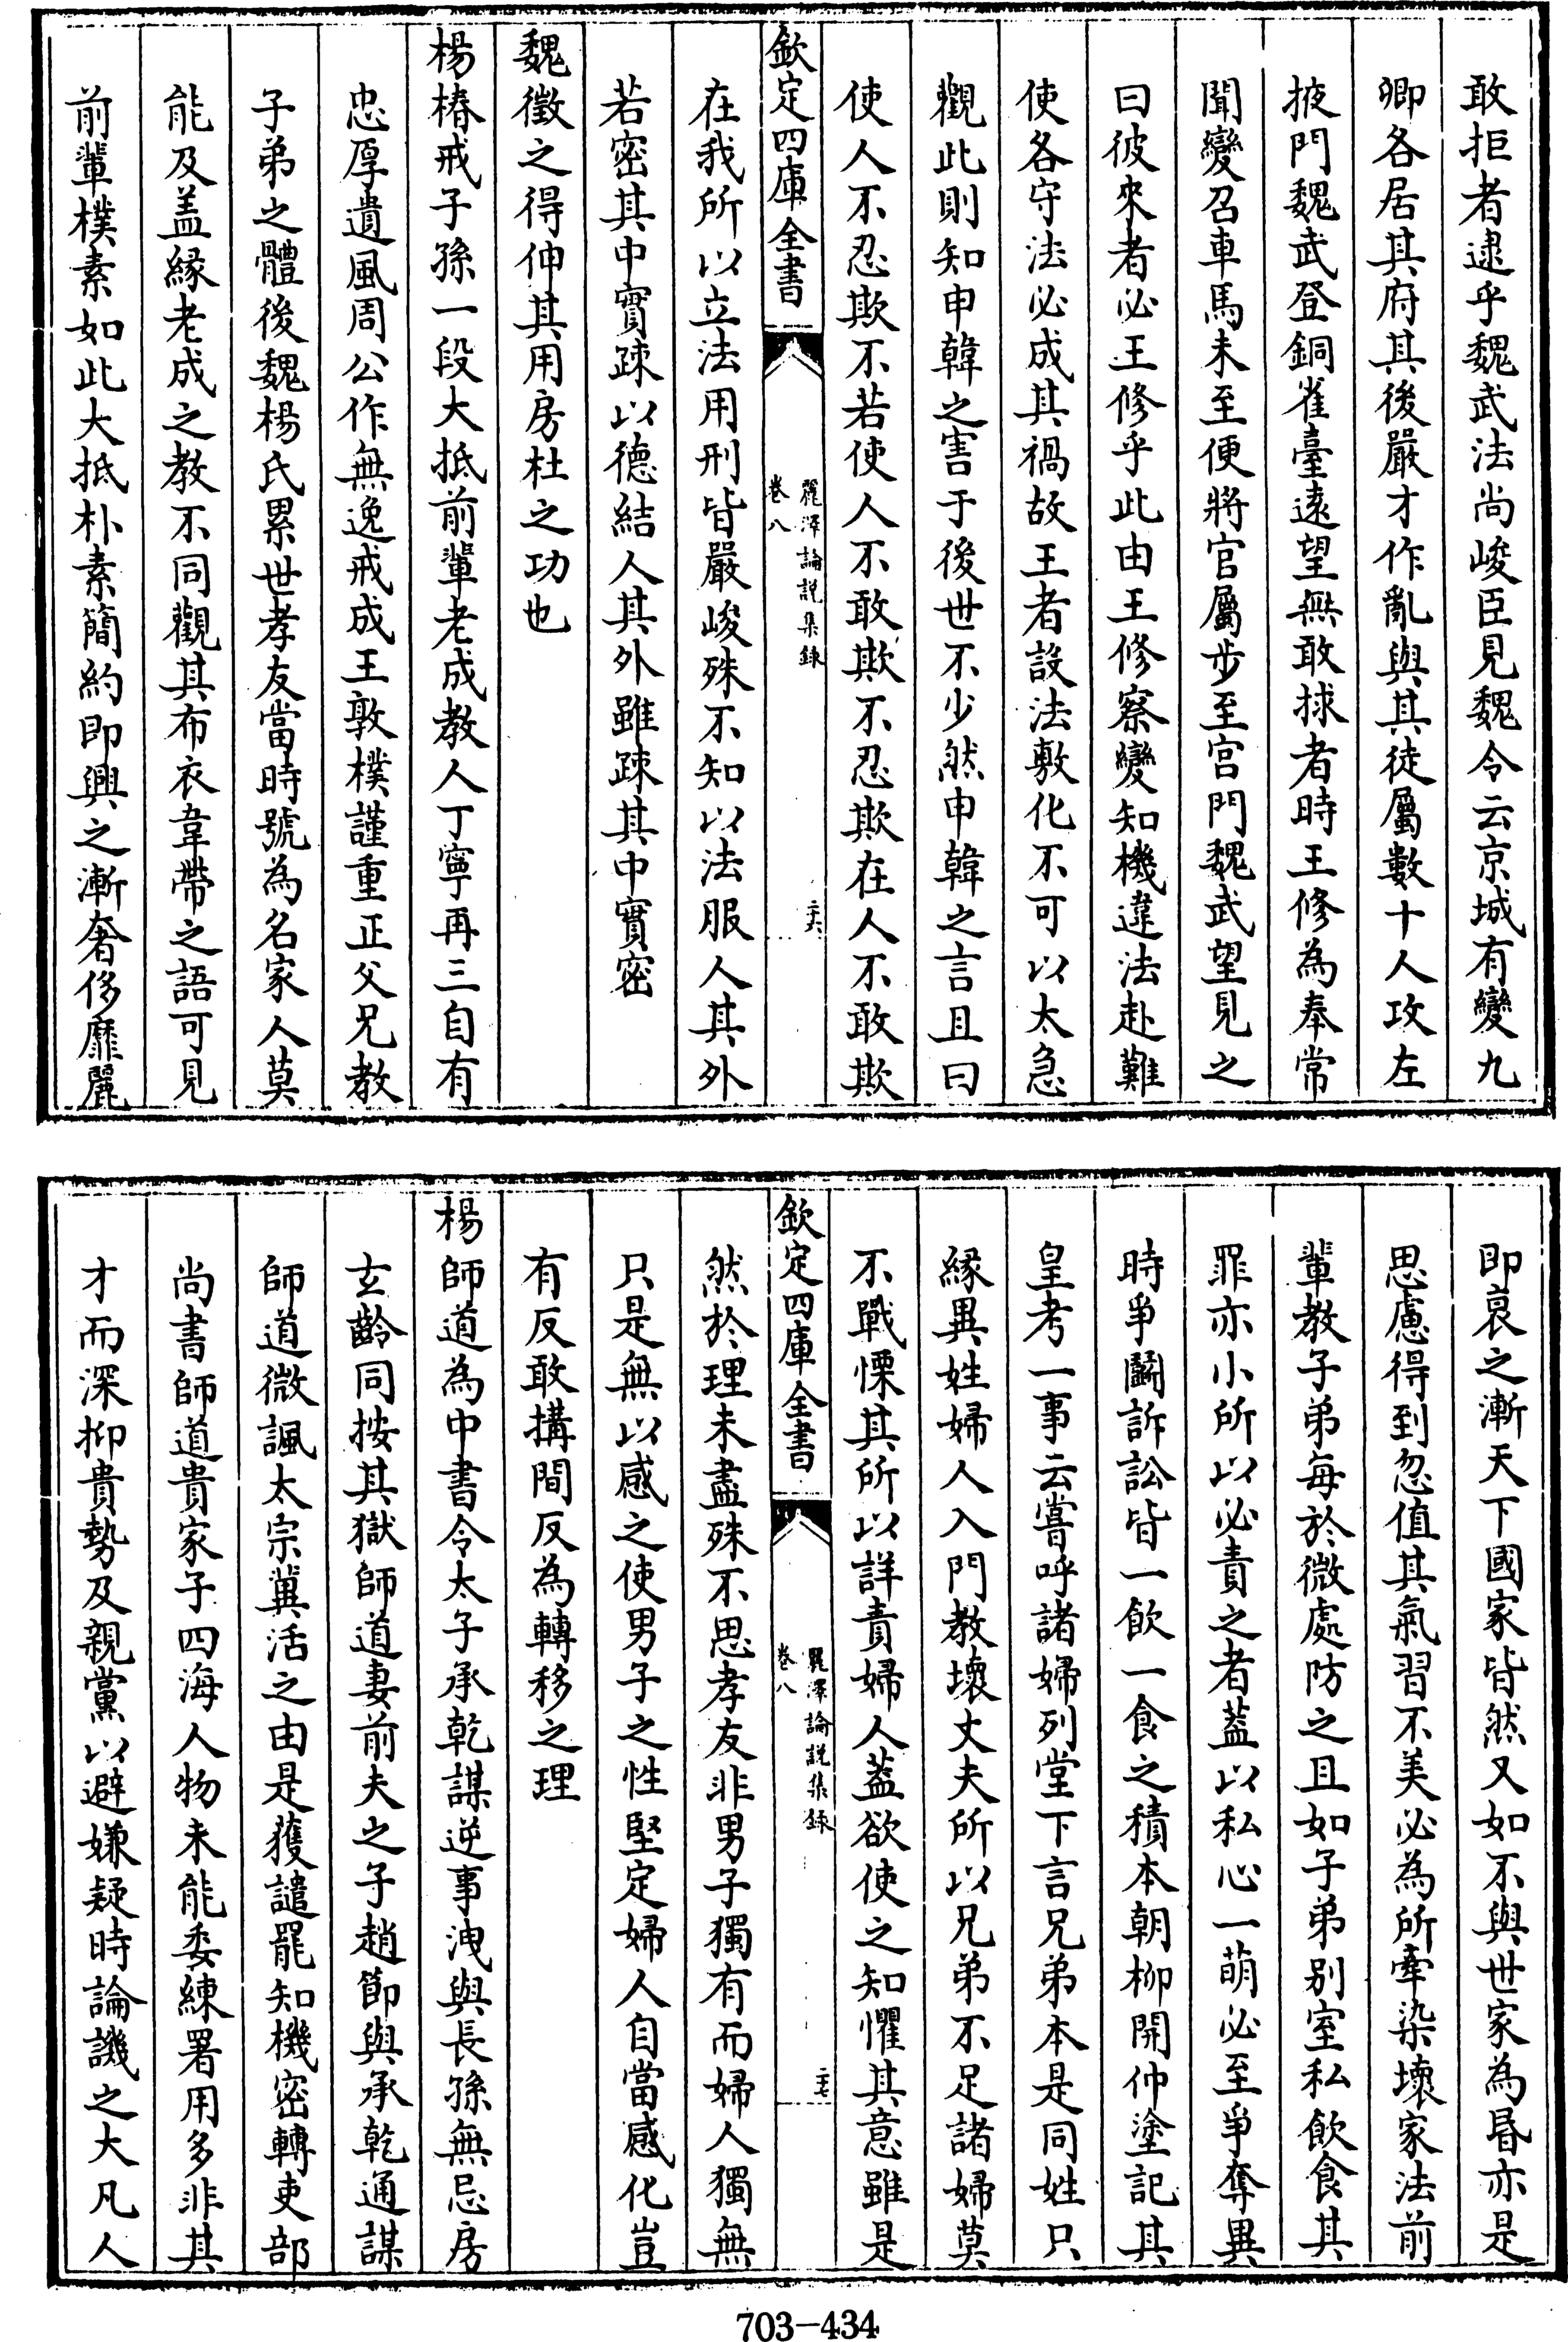 敢拒者逮乎魏武法尚峻臣見魏令云京城有變九
卿各居其府其後嚴才作亂與其徒屬數十人攻左
掖門魏武登銅雀臺遠望無敢捄者時王修為奉常
聞變召車馬未至便將官屬步至宫門魏武望見之
曰彼來者必王修乎此由王修察變知機違法赴難
使各守法必成其禍故王者設法敷化不可以太急
觀此則知申韓之害于後世不少然申韓之言且曰
使人不忍欺不若使人不敢欺不忍欺在人不敢欺
欽定四庫全書
麗澤論說集錄
卷八
二十六
在我所以立法用刑皆嚴峻殊不知以法服人其外
若密其中實疎以德結人其外雖疎其中實密
魏徵之得伸其用房杜之功也
楊椿戒子孫一段大抵前輩老成教人丁寧再三自有
忠厚遺風周公作無逸戒成王敦樸謹重正父兄教
子弟之體後魏楊氏累世孝友當時號為名家人莫
能及盖緣老成之教不同觀其布衣韋帶之語可見
前輩樸素如此大抵朴素簡約即興之漸奢侈靡麗
即衰之漸天下國家皆然又如不與世家為昬亦是
思慮得到忽值其氣習不美必為所牽染壞家法前
輩教子弟每於微處防之且如子弟别室私飲食其
罪亦小所以必責之者蓋以私心一萌必至爭奪異
時爭鬭訴訟皆一飲一食之積本朝柳開仲塗記其
皇考一事云嘗呼諸婦列堂下言兄弟本是同姓只
緣異姓婦人入門教壞丈夫所以兄弟不足諸婦莫
不戰慄其所以詳責婦人蓋欲使之知懼其意雖是
欽定四庫全書
麗澤論說集錄
卷八
二十七
然於理未盡殊不思孝友非男子獨有而婦人獨無
只是無以感之使男子之性堅定婦人自當感化豈
有反敢搆間反為轉移之理
楊師道為中書令太子承乾謀逆事洩與長孫無忌房
玄齡同按其獄師道妻前夫之子趙節與承乾通謀
師道微諷太宗冀活之由是獲譴罷知機密轉吏部
尚書師道貴家子四海人物未能委練署用多非其
才而深抑貴勢及親黨以避嫌疑時論譏之大凡人
703-434